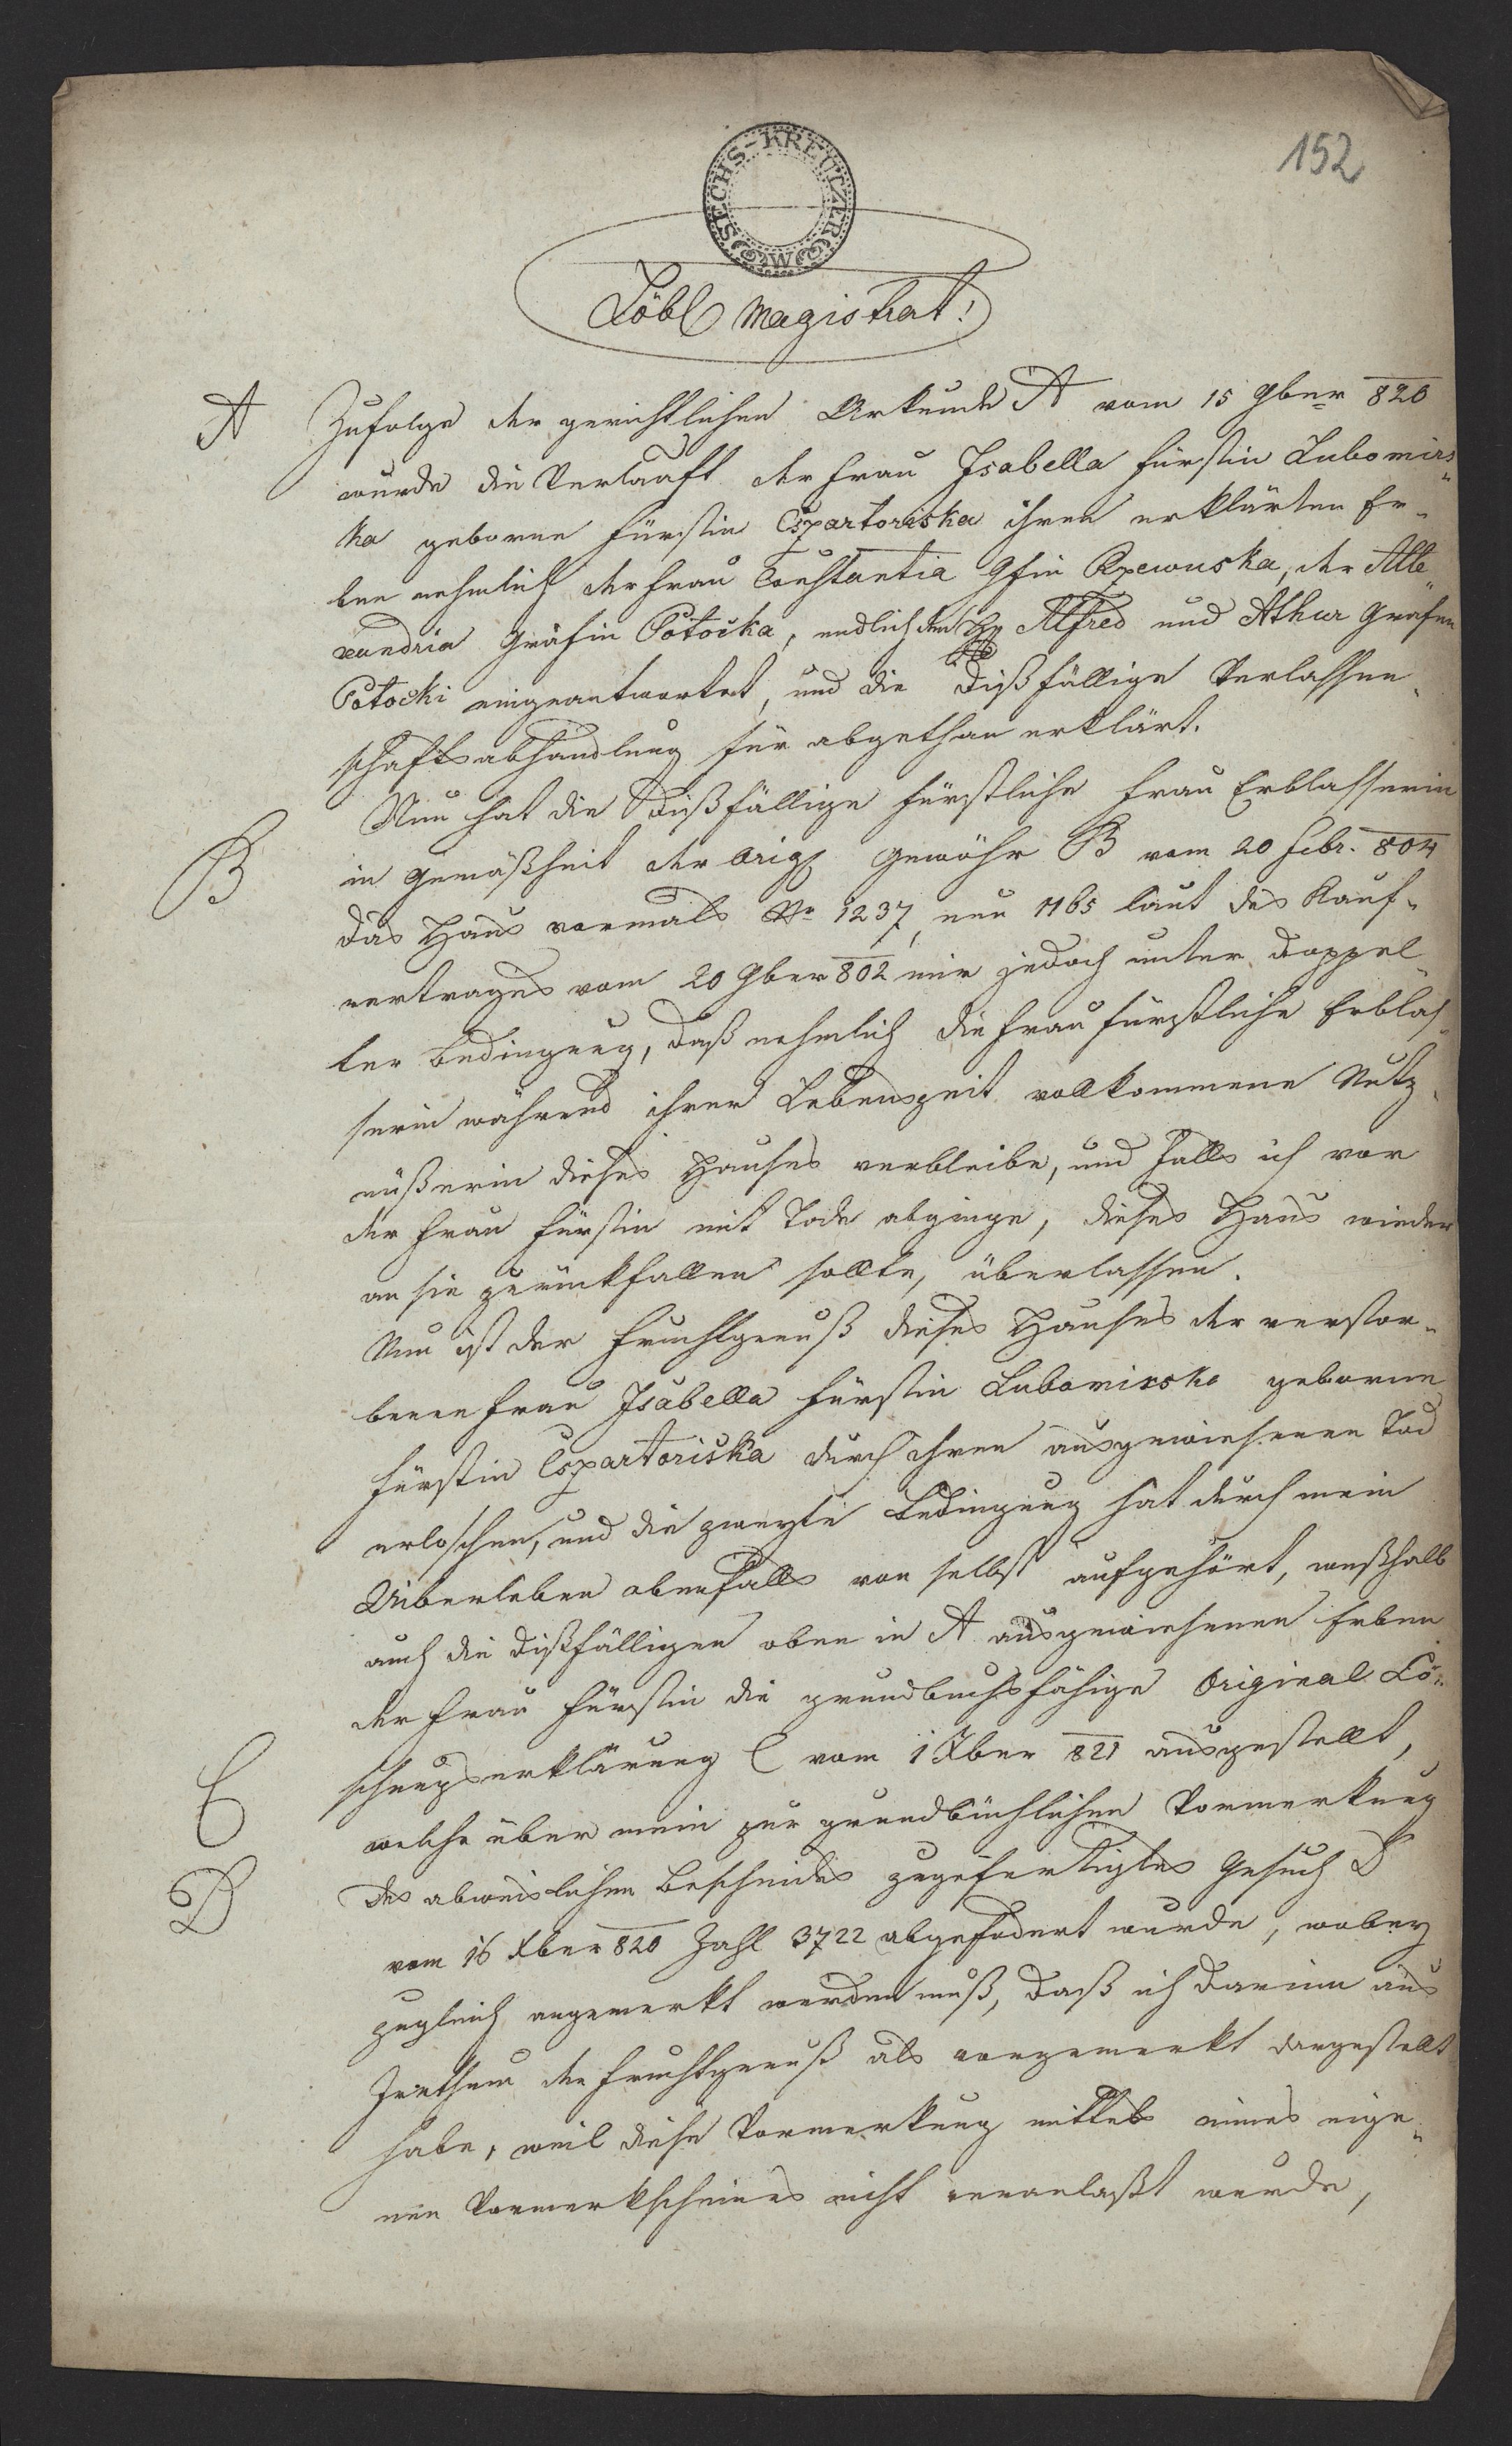 152
SECHS-KREUTZER
C M
Löbl Magistrat!
A Zufolge der gerichtlichen Urkunde A vom 15 9ber 820
wurde die Verlaaft der Frau Isabella Fürstin Lubomirs„
ka geborne Fürstin Cspartoriska ihren erklärten Er„
ben nehmlich der Frau Constantia Gfin Rzewuska, der Alle„
xandria Gräfin Potočka, endlich den H Alfred und Athur Grafen
Potocki eingeantwortet, und die dißfällige Verlassen„
schaftsabhandlung für abgethan erklärt.
Nun hat die dißfällige fürstliche Frau Erblasserin
B in Gemäßheit der Orig Gewöhr B vom 20 Febr. 804
das Haus vormals No 1237, nun 1165 laut des Kauf„
vertrages vom 20 9ber 802 mir jedoch unter doppel„
ter Bedingung, daß nehmlich die Frau fürstliche Erblas„
serin während ihrer Lebenszeit vollkommene Nutz„
nüßerin dieses Hauses verbleibe, und falls ich vor
der Frau Fürstin mit Tode abginge, dieses Haus wieder
an sie zurückfallen sollte, überlassen.
Nun ist der Fruchtgenuß dieses Hauses der verstor„
benen Frau Isabella Fürstin Lubomirska geborne
Fürstin Cspartoriska durch ihren ausgewiesenen Tod
erloschen, und die zweyte Bedingung hat durch mein
Uiberleben ebenfalls von selbst aufgehört, weßhalb
auch die dißfälligen oben in A ausgewiesenen Erben
der Frau Fürstin die grundbuchsfähige Original Lö„
C schungserklärung C vom 1 Xber 821 ausgestellt,
welche über mein zur grundbüchlichen Vormerkung
D des abweislichen Bescheides zugefertigtes Gesuch D
vom 16 Xber 820 Zahl 3722 abgefodert wurde, wobey
zugleich angemerkt werden muß, daß ich darinn aus
Irrthum den Fruchtgenuß als vorgemerkt dargestellt
habe, weil diese Vormerkung mittels eines eige„
nen Vormerkscheines nicht veranlaßt wurde,